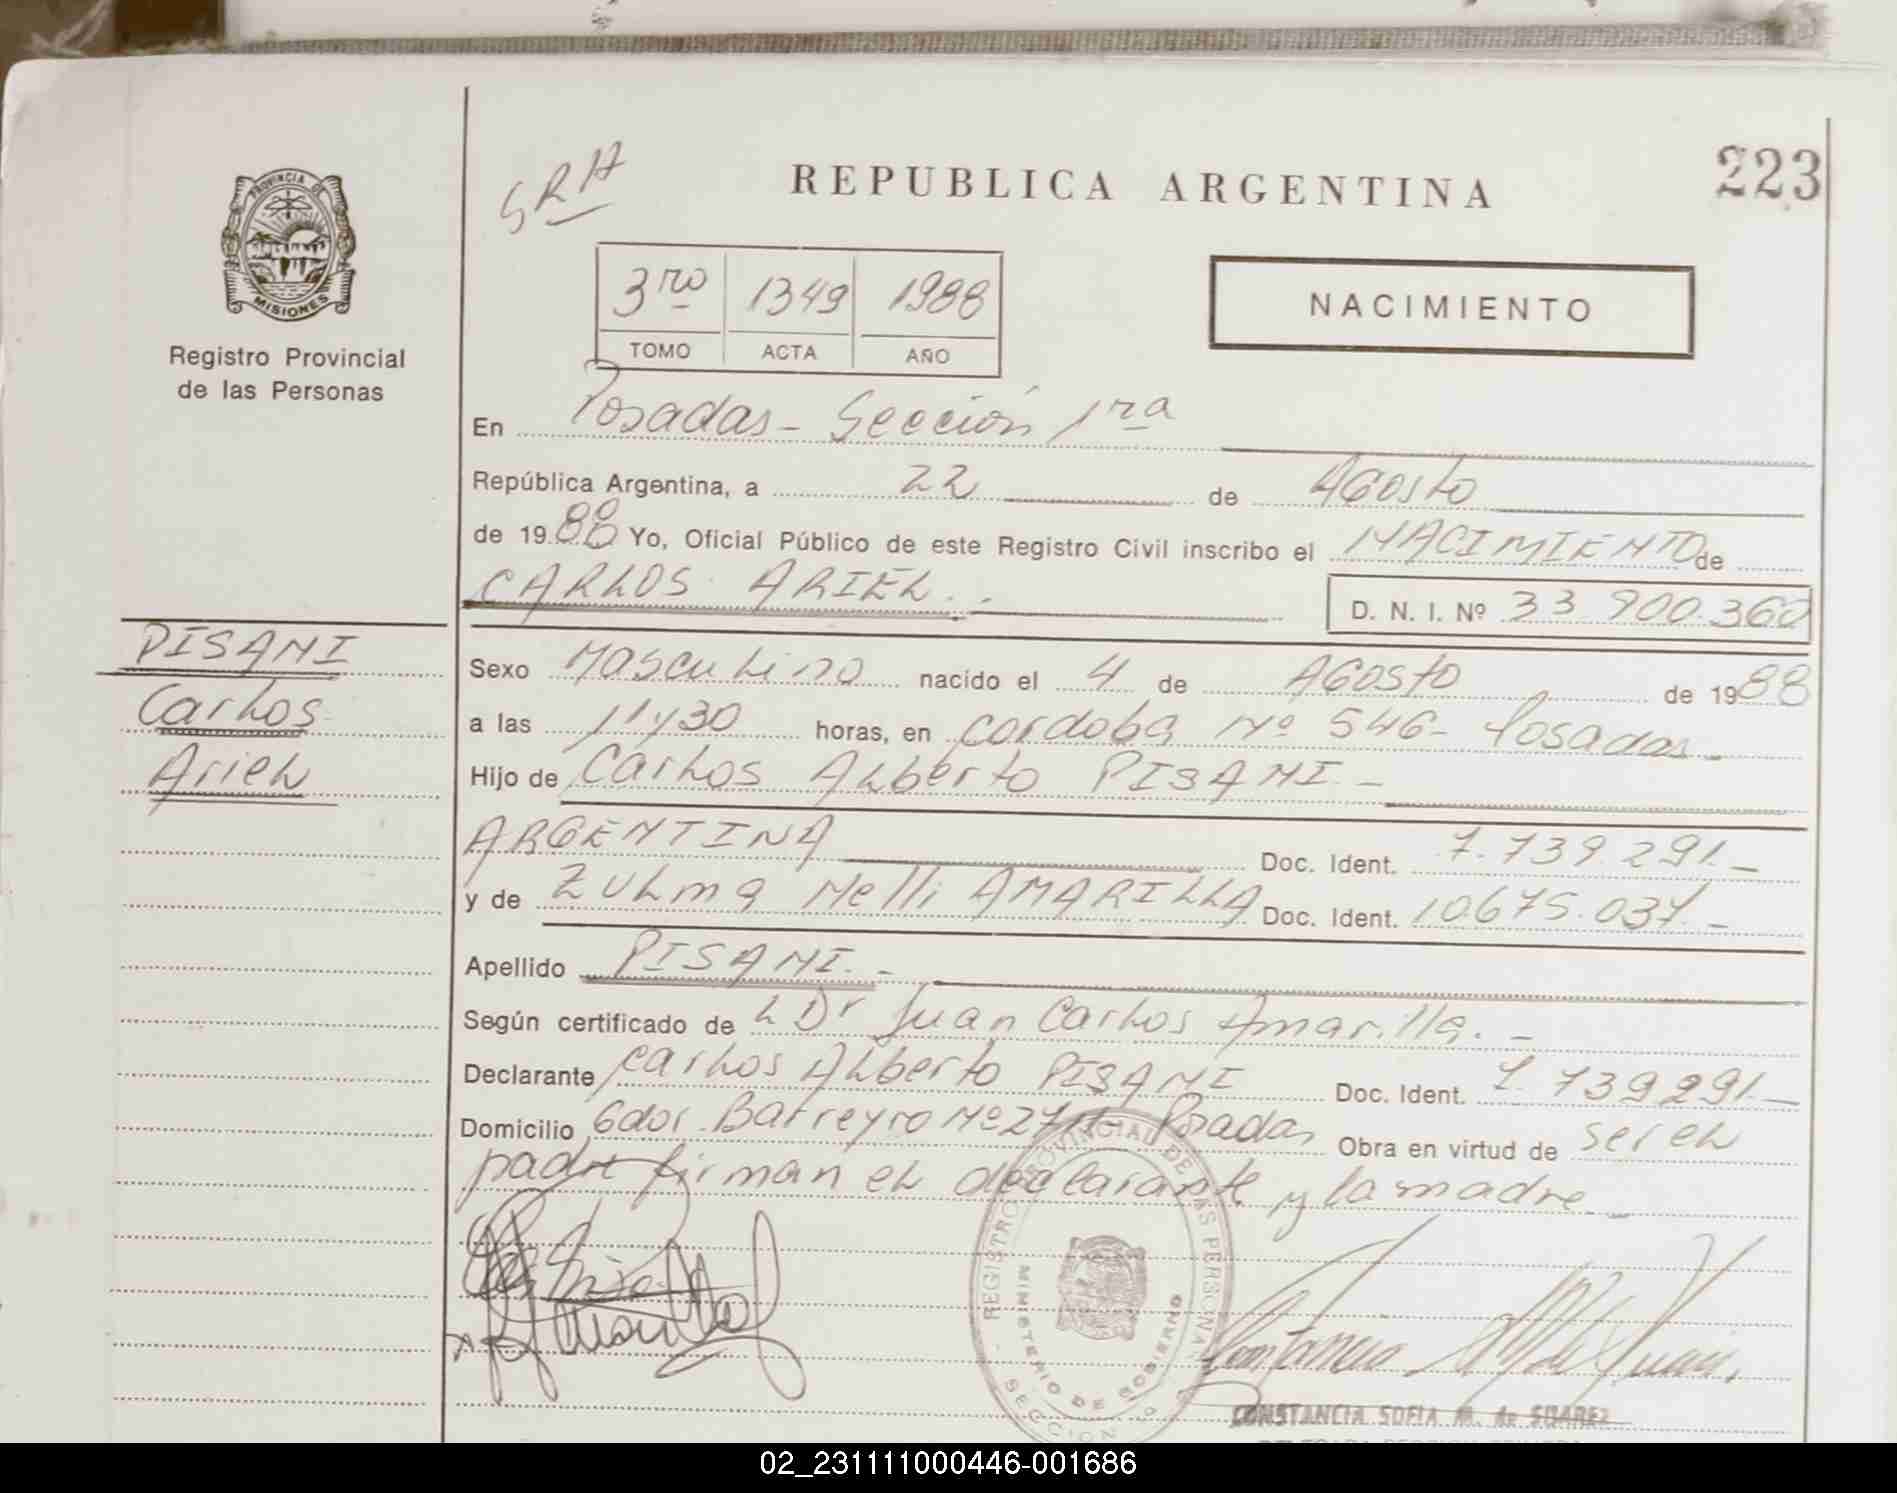 223
SRA
REPUBLICA ARGENTINA
PROVINCIA DE
MISIONES
Registro Provincial
de las Personas
3ro 1349 1988
TOMO ACTA AÑO
NACIMIENTO
En Posadas - Sección 1ra
República Argentina, a 22 de Agosto
de 1988 Yo, Oficial Público de este Registro Civil inscribo el NACIMIENTO de
CARLOS ARIEL.-
D. N. I. Nº 33 900.360
PISANI
Carlos
Ariel
Sexo Masculino nacido el 4 de Agosto de 1988
a las 11y30 horas, en Cordoba Nº 546- Posadas -
Hijo de Carlos Alberto PISANI -
ARGENTINA Doc. Ident. 7.739.291.-
y de Zulma Nelli AMARILLA Doc. Ident. 10.675.037.-
Apellido PISANI.-
Según certificado de L Dr Juan Carlos Amarilla. -
Declarante Carlos Alberto PISANI Doc. Ident. 7.739291.-
Domicilio Gdor. Barreyro Nº Posadas Obra en virtud de ser el
padre firman el declarante y la madre -
REGISTRO PROVINCIAL DE LAS PERSONAS
MINISTERIO DE GOBIERNO
SECCION
CONSTANCIA SOFIA M. de SUAREZ
02_231111000446-001686